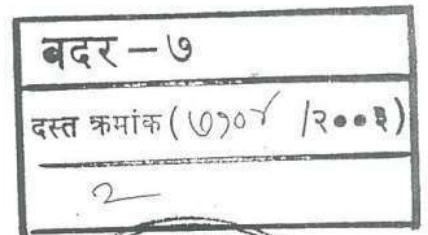 बदर - ७
दस्त क्रमांक ( ७१०४ /२००३)
२